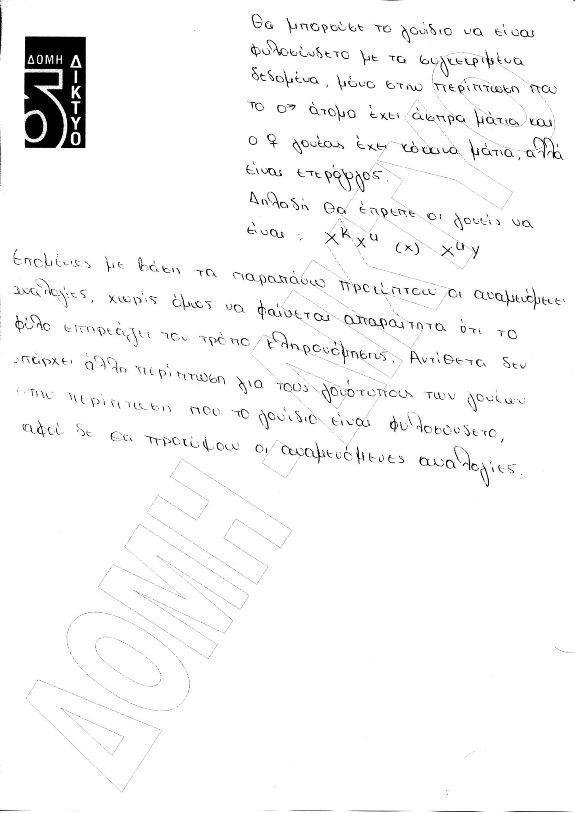 ΔΟΜΗ
ΔΙΚΤΥΟ
5
Θα μπορούσε το γονίδιο να είναι
φυλοσύνδετο με τα συγκεκριμένα
δεδομένα, μόνο στην περίπτωση που
το ♂ άτομο έχει άσπρα μάτια και
ο ♀ γονέας έχει κόκκινα μάτια, αλλά
είναι ετερόζυγος.
Δηλαδή θα έπρεπε οι γονείς να
είναι : Χᵏ Χᵃ (x) Χᵃ Υ
Επομένως με βάση τα παραπάνω προκύπτουν οι αναμενόμενες
αναλογίες, χωρίς όμως να φαίνεται απαραίτητα ότι το
φύλο επηρεάζει τον τρόπο κληρονόμησης. Αντίθετα δεν
υπάρχει άλλη περίπτωση για τους γονότυπους των γονέων
στην περίπτωση που το γονίδιο είναι φυλοσύνδετο,
αφού δε θα προκύψουν οι αναμενόμενες αναλογίες.
ΔΟΜΗ - ΔΙΚΤΥΟ